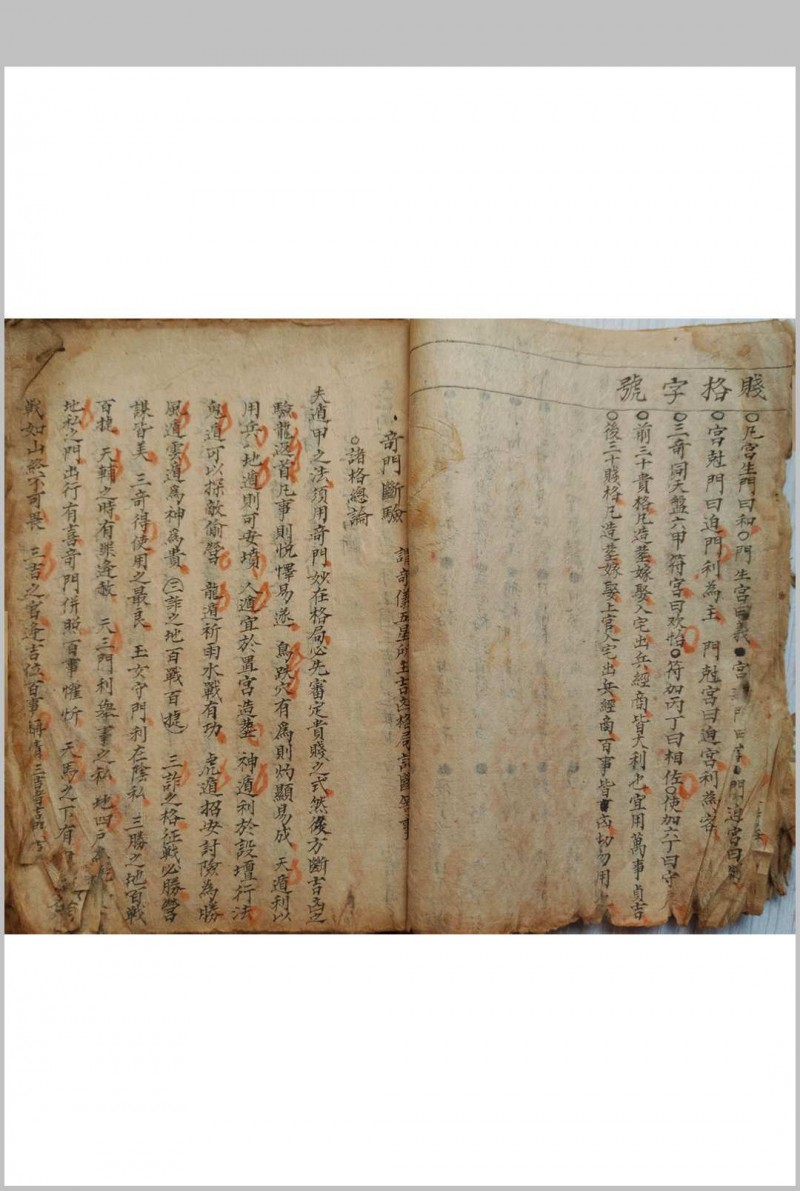 賤格字號
○凡宮生門曰和○門生宮曰義●宮
宮尅門曰迫門利為主 門尅宮曰迫宮利為客
○三奇同天盤六甲符宮曰欢怡○符加丙丁曰相佐○使加六丁曰守
○前三十貴格凡造塟嫁娶入宅出兵經商皆大利也宜用萬事貞吉
○後三十賤格凡造塟嫁娶上官入宅出兵經商百事皆凶切勿用
奇門斷驗
○諸格總論
夫遁甲之法須用奇門妙在格局必先審定貴賤之式然後方斷吉凶之
驗龍返首凡事則悅懌易遂 鳥跌穴有為則灼顯易成 天遁利以
用兵 地遁則可安墳 人遁宜於置宮造塟 神遁利於設壇行法
鬼遁可以探敵偷營 龍遁祈雨水戰有功 虎遁招安討險為勝
風遁雲遁為神為貴 三詐之地百戰百捷 三詐之格征戰必勝營
謀皆美 三奇得使用之最良 玉女守門利在陰私 三勝之地百戰
百捷 天輔之時有罪逢赦 天三門利舉事之私 地四戶
地私之門出行有喜奇門併照百事懽忻 天馬之下有
戰如山終不可畏 三吉之宮逢吉位百事